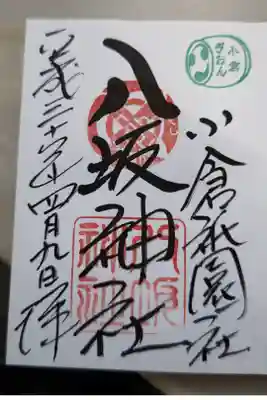 小倉祇園社
八坂神社
平成三十六年四月九日拝
小倉
ぎおん
八坂
神社